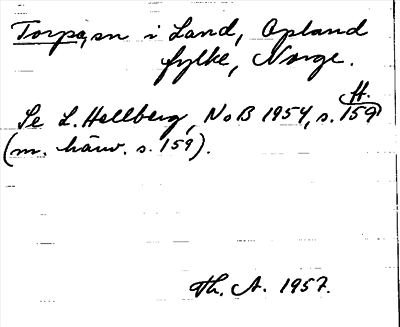 Torpa, sn i Land, Opland
fylke, Norge.
Se L. Hellberg, NoB 1954, s. 159 ff.
(m. hänv. s. 159).
Th. A. 1957.